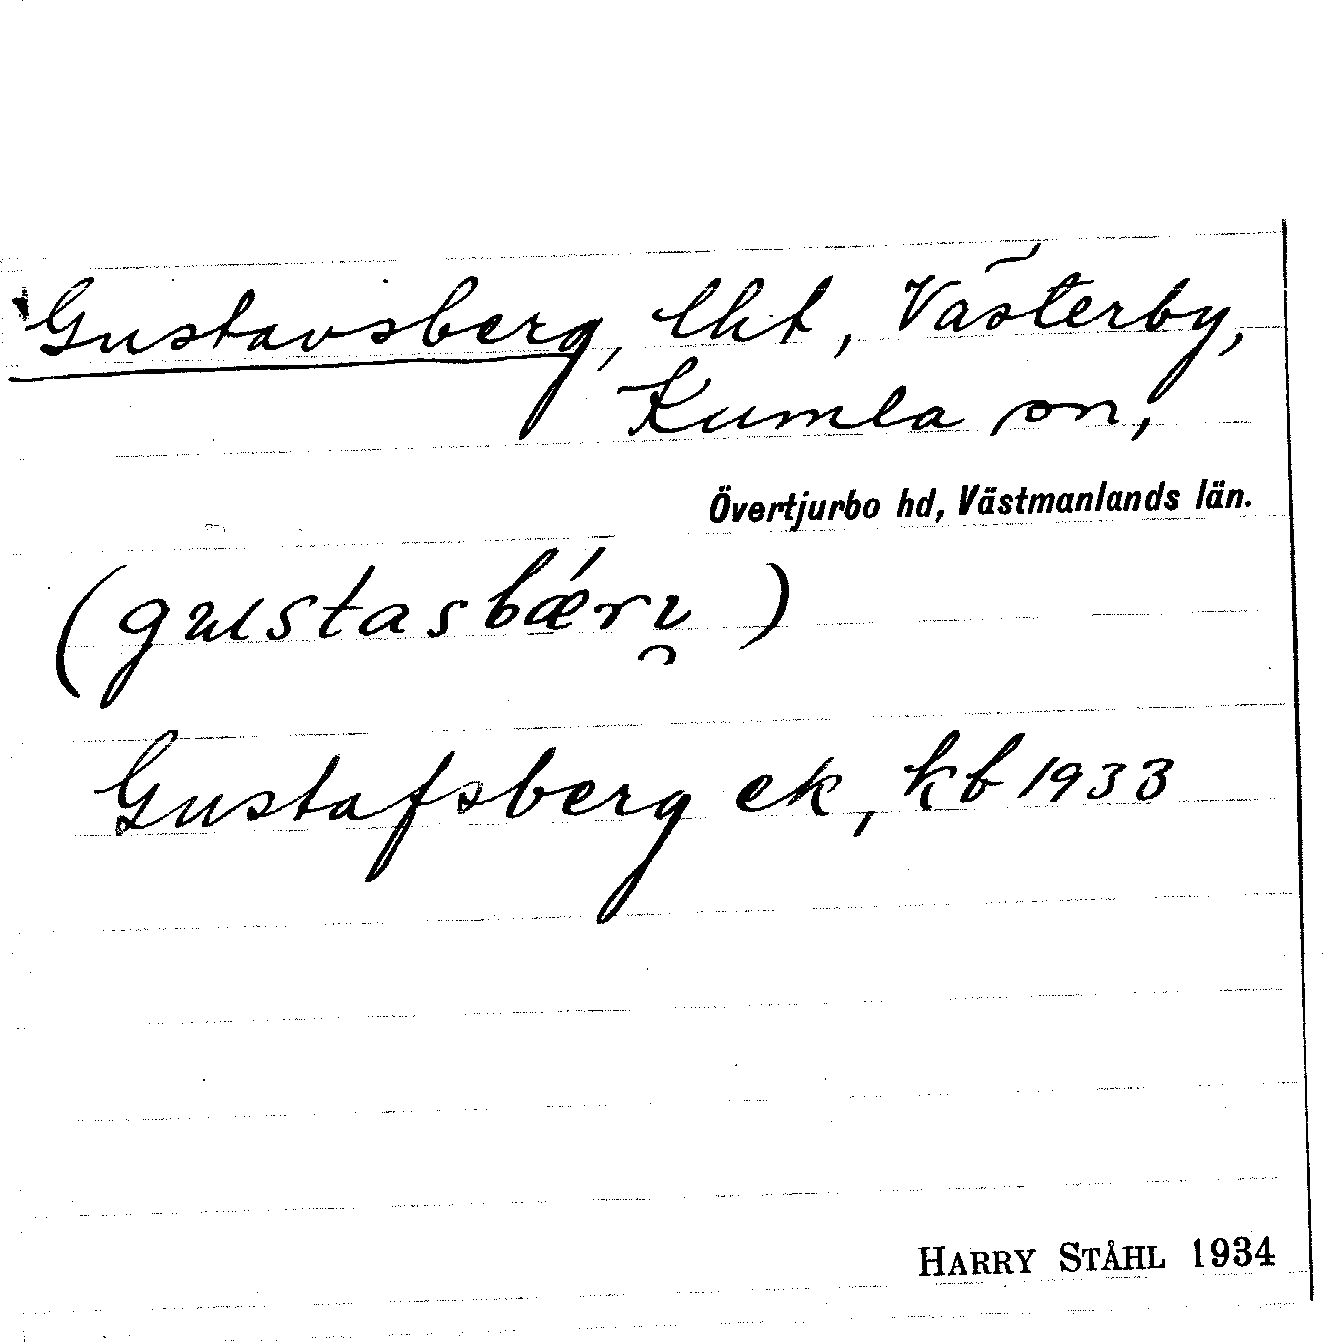 Gustavsberg, lht, Västerby,
Kumla sn,
Övertjurbo hd, Västmanlands län.
Gustafsberg ek, kb 1933
HARRY STÅHL 1934